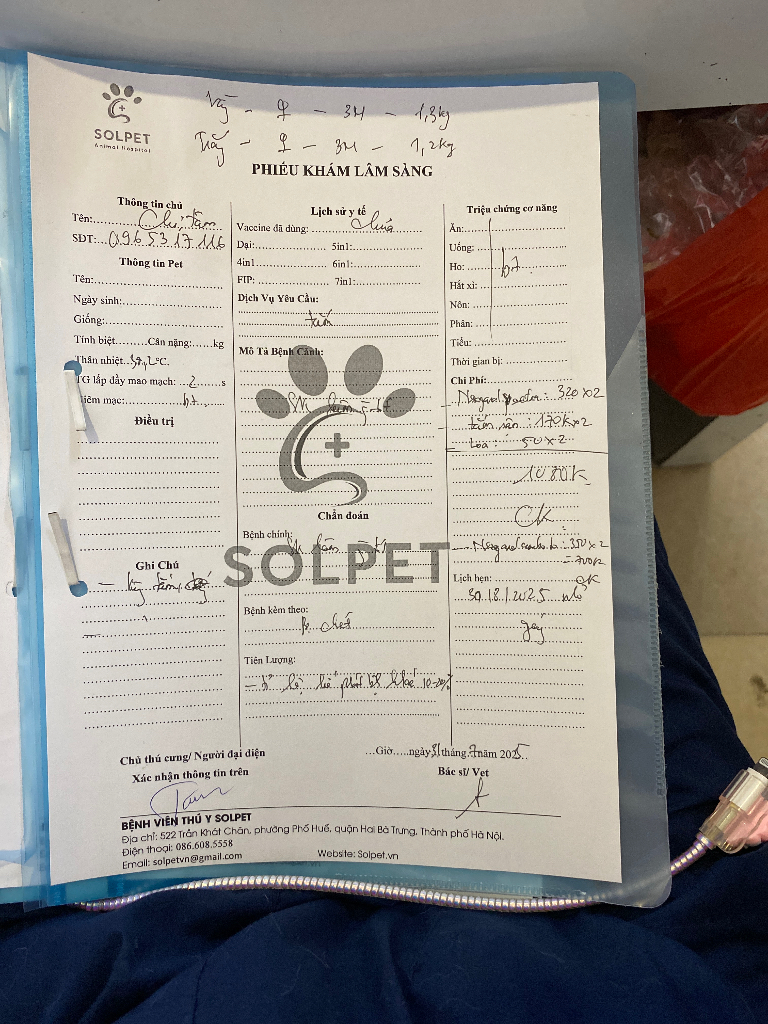 SOLPET
Animal Hospital
- ♀ - 3M - 1,3kg
- ♀ - 3M - 1,2kg
PHIẾU KHÁM LÂM SÀNG
Thông tin chủ
Tên: Chị Tâm
SĐT: 0965317116
Thông tin Pet
Tên:
Ngày sinh:
Giống:
Tính biệt Cân nặng: kg
Thân nhiệt °C.
TG lấp đầy mao mạch: 2 s
Niêm mạc: bt
Điều trị
Ghi Chú
Lịch sử y tế
Vaccine đã dùng: chưa
Dại: 5in1:
4in1 6in1:
FIP: 7in1:
Dịch Vụ Yêu Cầu:
tắm
Mô Tả Bệnh Cảnh:
Chẩn đoán
Bệnh chính:
Bệnh kèm theo:
Tiên Lượng:
10-20%
Triệu chứng cơ năng
Ăn:
Uống:
Ho: bt
Hắt xì:
Nôn:
Phân:
Tiểu:
Thời gian bị:
Chi Phí:
- Nexgard : 320 x 2
- tắm : 170K x 2
- Loa : 50 x 2
1080K
CK
- Nexgard combo : 350 x 2
= 700K
CK
Lịch hẹn:
30/8/2025
SOLPET
Chủ thú cưng/ Người đại diện
Xác nhận thông tin trên
Tâm
Giờ ngày 31 tháng 7 năm 2025
Bác sĩ/ Vet
BỆNH VIỆN THÚ Y SOLPET
Địa chỉ: 522 Trần Khát Chân, phường Phố Huế, quận Hai Bà Trưng, Thành phố Hà Nội.
Điện thoại: 086.608.5558
Email: solpetvn@gmail.com Website: Solpet.vn